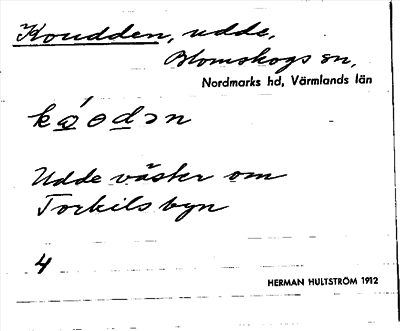 Koudden, udde,
Blomskogs sn,
Nordmarks hd, Värmlands län
Udde väster om
Torkilsbyn
4
HERMAN HULTSTRÖM 1912